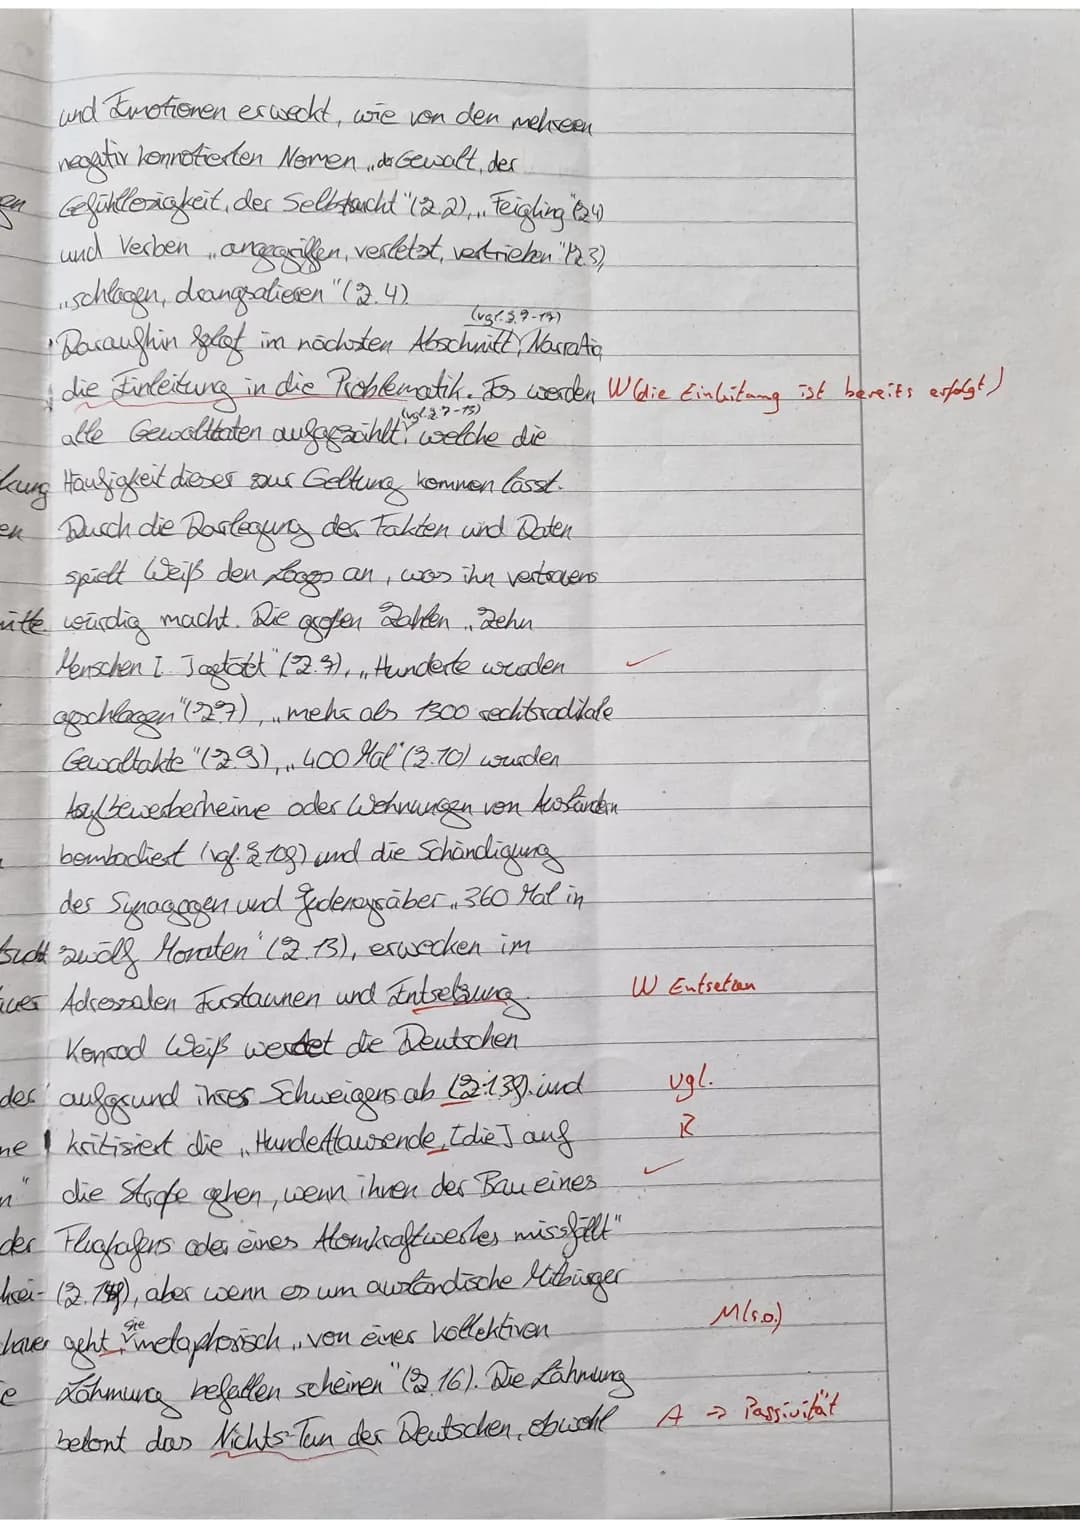 und Emotionen erweckt, wie von den mehreren
negativ konnotierten Nomen „der Gewalt, der
gen Gefühllosigkeit, der Selbstsucht" (Z.2), „Feigling" (Z.4)
und Verben „angegriffen, verletzt, vertrieben" (Z.3),
„schlagen, drangsalieren" (Z.4).
(vgl. Z.7-17)
Daraufhin folgt im nächsten Abschnitt, Narratio,
die Einleitung in die Problematik. Es werden W (die Einleitung ist bereits erfolgt)
(vgl. Z.7-15)
alle Gewalttaten aufgezählt, welche die
kung Häufigkeit dieser zur Geltung kommen lässt.
en Durch die Darlegung der Fakten und Daten
spielt Weiß den Logos an, was ihn vertrauens
mitte würdig macht. Die großen Zahlen „Zehn
Menschen [...] getötet" (Z.7), „Hunderte wurden
geschlagen" (Z.7), „mehr als 1300 rechtsradikale
Gewaltakte" (Z.9), „400 Mal" (Z.10) wurden
Asylbewerberheime oder Wohnungen von Ausländern
bombadiert (vgl. Z.10f) und die Schändigung
der Synagogen und Judengräber „360 Mal in
zwölf Monaten" (Z.13), erwecken im
Adressaten Erstaunen und Entsetzung. W Entsetzen
Konrad Weiß wertet die Deutschen
der aufgrund ihres Schweigens ab (Z.13f) und vgl.
ne kritisiert die „Hunderttausende, [die] auf R
n" die Straße gehen, wenn ihnen der Bau eines
der Flughafens oder eines Atomkraftwerkes missfällt"
hrei- aber wenn es um ausländische Mitbürger
sie M (s.o.)
hauer geht, metaphorisch „von einer kollektiven
e Lähmung befallen scheinen" (Z.16). Die Lähmung
betont das Nichts-Tun der Deutschen, obwohl A → Passivität